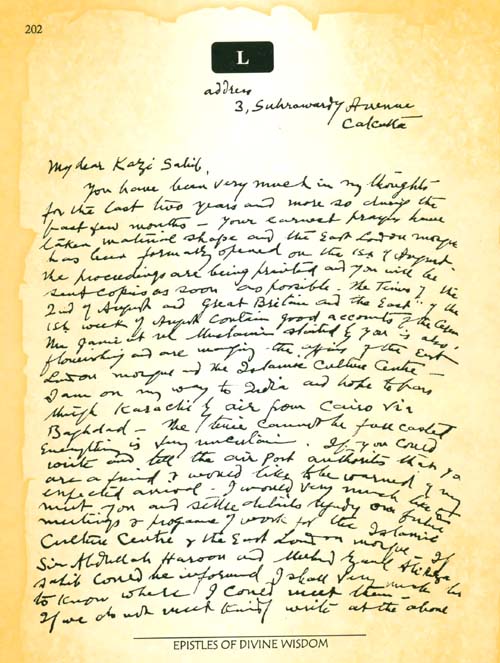 202
L
address
3, Suhrawardy Avenue
Calcutta
My dear Kazi Sahib,
You have been very much in my thoughts
for the last two years and more so during the
past few months – Your earnest prayers have
taken material shape and the East London mosque
has been formally opened on the 1st of August.
The proceedings are being printed and you will be
sent copies as soon as possible. The Times of the
2nd of August and Great Britain and the East of the
1st week of August contain good accounts of the
The Jamiat ul Muslimin started by you is also
flourishing and are managing the affairs of the East
London mosque and the Islamic Culture Centre –
I am on my way to India and hope to pass
through Karachi by air from Cairo via
Baghdad – The time cannot be forecasted
Everything is very uncertain. If you could
write and tell the air port authorities that you
are a friend & would like to be warned of my
expected arrival – I would very much like to
meet you and settle details regarding our future
meetings & programme of work for the Islamic
Culture Centre & the East London mosque – If
Sir Abdullah Haroon and
Sahib could be informed I shall very much like
to know where I could meet them –
If we do not meet kindly write at the above
EPISTLES OF DIVINE WISDOM